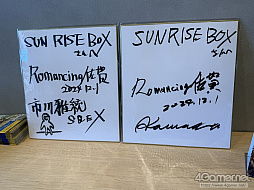 SUN RISE BOX
さんへ
Romancing佐賀
2024.12.1
市川雅統
S.E.X
SUNRISE BOX
さんへ
Romancing佐賀
2024.12.1
4Gamer.net